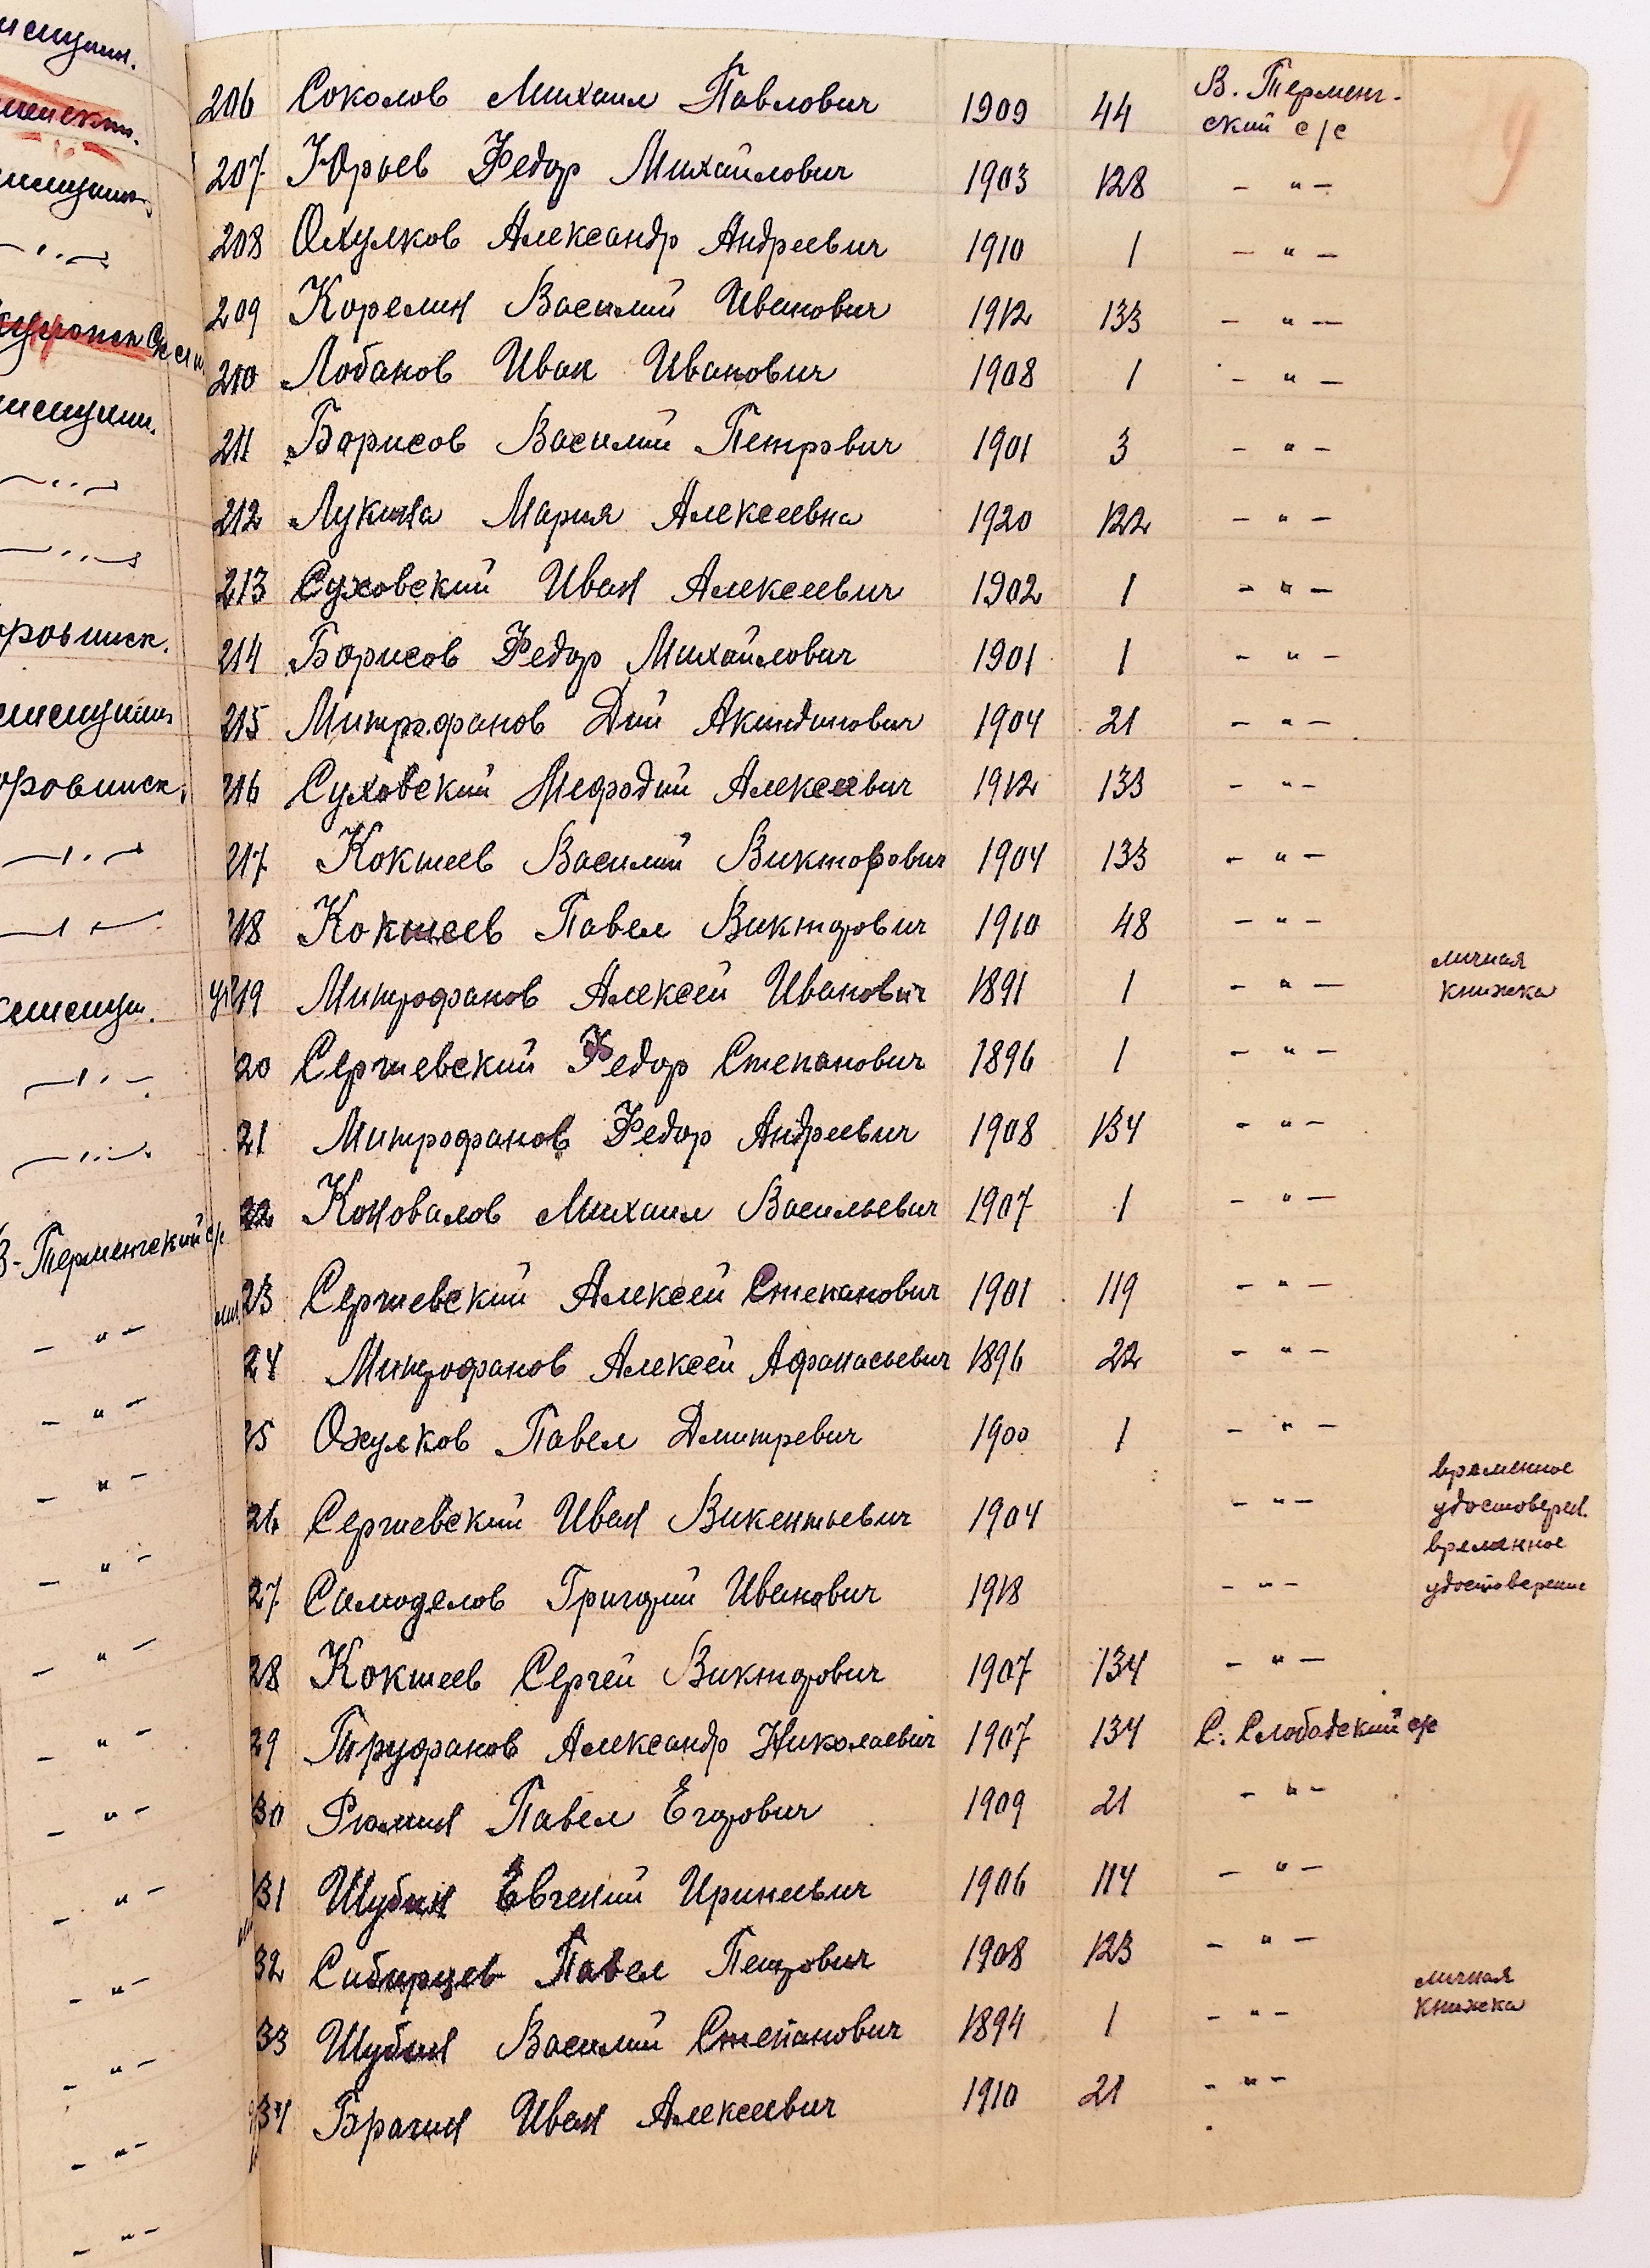 206 Соколов Михаил Павлович 1909 44 В. Терменг-
ский с/с
207 Юрьев Федор Михайлович 1903 128 - " -
208 Ожулков Александр Андреевич 1910 1 - " -
209 Корелин Василий Иванович 1912 133 - " -
210 Лобанов Иван Иванович 1908 1 - " -
211 Борисов Василий Петрович 1901 3 - " -
212 Лукина Мария Алексеевна 1920 122 - " -
213 Суховский Иван Алексеевич 1902 1 - " -
214 Борисов Федор Михайлович 1901 1 - " -
215 Митрофанов Дий Акиндинович 1904 21 - " -
216 Суховский Мефодий Алексеевич 1912 133 - " -
217 Кокшеев Василий Викторович 1904 133 - " -
218 Кокшеев Павел Викторович 1910 48 - " -
219 Митрофанов Алексей Иванович 1891 1 - " - личная
книжка
20 Сергиевский Федор Степанович 1896 1 - " -
21 Митрофанов Федор Андреевич 1908 134 - " -
22 Коновалов Михаил Васильевич 1907 1 - " -
23 Сергиевский Алексей Степанович 1901 119 - " -
24 Митрофанов Алексей Афанасьевич 1896 22 - " -
25 Ожулков Павел Дмитревич 1900 1 - " -
26 Сергиевский Иван Викентьевич 1904 - " - временное
удостоверен.
27 Самоделов Григорий Иванович 1918 - " - временное
удостоверение
28 Кокшеев Сергей Викторович 1907 134 - " -
29 Труфанов Александр Николаевич 1907 134 С. Слободский с/с
30 Рюмин Павел Егорович 1909 21 - " -
31 Шубин Евгений Иринеевич 1906 114 - " -
32 Сибирцев Павел Петрович 1908 123 - " -
33 Шубин Василий Степанович 1894 1 - " - личная
книжка
34 Брагин Иван Алексеевич 1910 21 - " -
9
В-Терменгский с/с